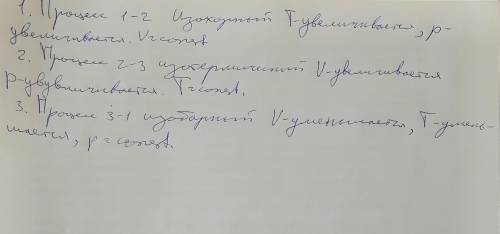 1. Процесс 1-2 Изохорный T-увеличивается, p-
увеличивается. V=const
2. Процесс 2-3 изотермический V-увеличивается
P-увувеличивается. T=const.
3. Процесс 3-1 изобарный V-уменьшается, T-умень-
шается, p=const.